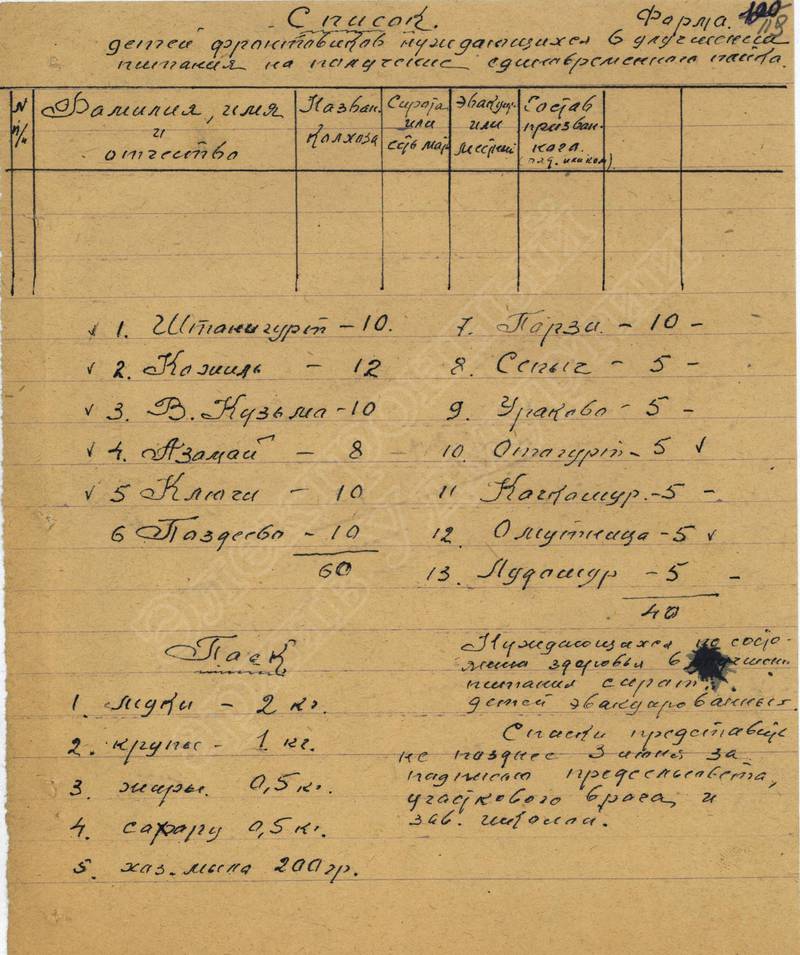 Список. Форма. 120
119
детей фронтовиков нуждающихся в улучшении
питания на получение единовременного пайка.
N п/п
Фамилия, имя и отчество
Назван. колхоза
Сирота или есть мать
Эвакуир. или местный
Состав призван-ного (ряд. или ком).
v 1. Штанигурт - 10.
v 2. Кожиль - 12
v 3. В. Кузьма - 10
v 4. Азамай - 8
v 5 Ключи - 10
6 Паздеево - 10
60
7. Парзи - 10 -
8. Сепыч - 5 -
9. Ураково - 5 -
10. Отогурт - 5 v
11 Качкашур. - 5 -
12. Омутница - 5 v
13. Лудошур - 5 -
40
Паек
1. муки - 2 кг.
2. крупы - 1 кг.
3. жиры. 0,5 кг.
4. сахару 0,5 кг.
5. хоз. мыла 200 гр.
Нуждающихся по состо-
янию здоровья в
питания сирот.
детей эвакуированных.
Списки представить
не позднее 3 июня за
подписью предсельсовета,
участкового врача и
зав. школой.